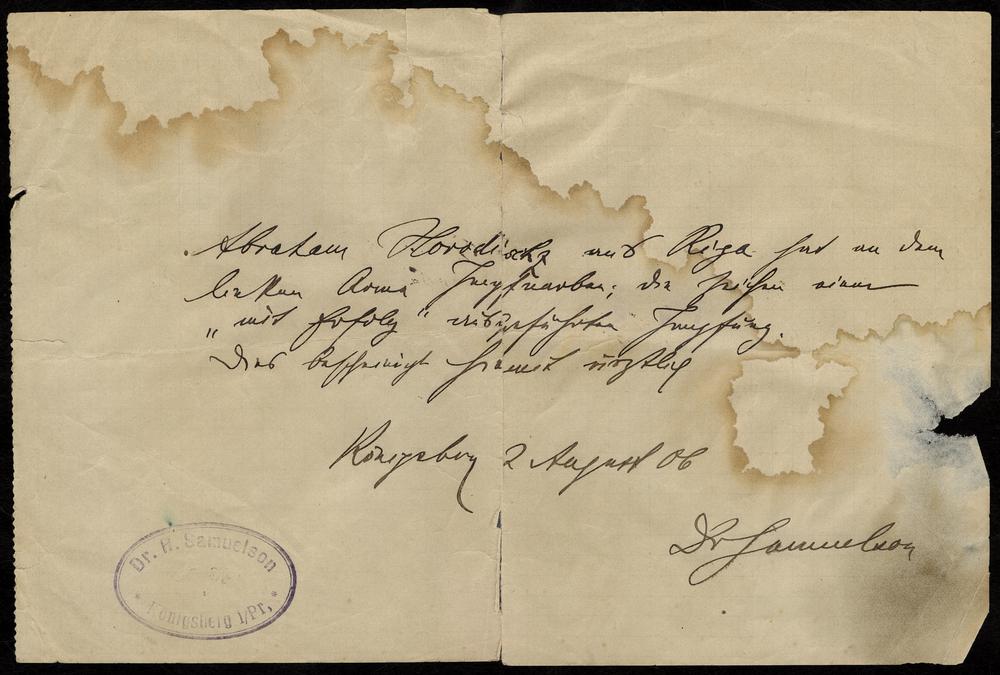 Abraham Horodisch aus Riga hat an dem
linken Arme Impfnarben; die Zeichen einer
„mit Erfolg" ausgeführten Impfung.
Dies bescheinigt hiermit ärztlich
Königsberg 2 August 06
Dr Samuelson
Dr. H. Samuelson
Königsberg i/Pr.